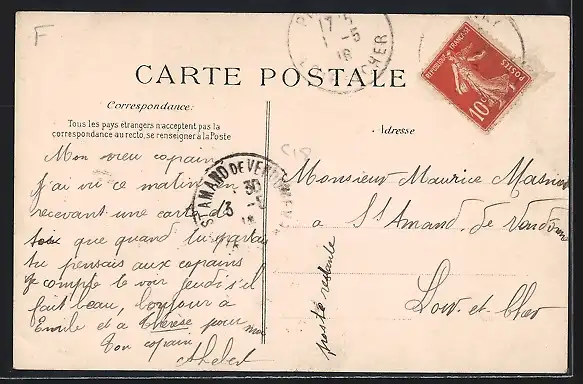 F
CARTE POSTALE
Correspondance:
Tous les pays étrangers n'acceptent pas la
correspondance au recto, se renseigner à la Poste
Adresse
REPUBLIQUE FRANÇAISE
POSTES
10c
LOIR CHER
ST AMAND DE VENDOME
C18
Mon vieu copain
J'ai vu ce matin en
recevant une carte de
toi que quand tu
tu pensais aux copains
Je compte te voir jeudi s'il
fait beau, bonjour a
Emile et a Thérèse pour moi
Ton copain
Monsieur Maurice
a St Amand de Vendôme
Loir et Cher
poste restante